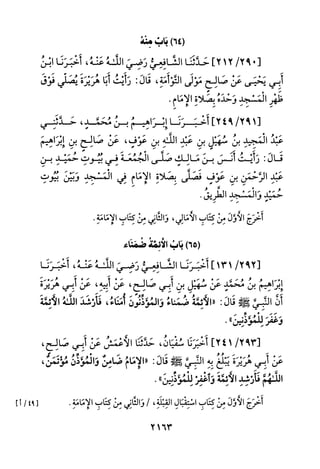 (٦٤) بَابٌ مِنْهُ
[٢١٢/٢٩٠] حَدَّثَنَا الشَّافِعِيُّ رَضِيَ اللَّهُ عَنْهُ، أَخْبَرَنَا ابْنُ
أَبِي يَحْيَى عَنْ صَالِحٍ مَوْلَى التَّوْأَمَةِ، قَالَ: رَأَيْتُ أَبَا هُرَيْرَةَ يُصَلِّي فَوْقَ
ظَهْرِ الْمَسْجِدِ وَحْدَهُ بِصَلَاةِ الْإِمَامِ.
[٢٤٩/٢٩١] أَخْبَرَنَا إِبْرَاهِيمُ بْنُ مُحَمَّدٍ، حَدَّثَنِي
عَبْدُ الْمَجِيدِ بْنُ سُهَيْلِ بْنِ عَبْدِ اللَّهِ بْنِ عَوْفٍ، عَنْ صَالِحِ بْنِ إِبْرَاهِيمَ
قَالَ: رَأَيْتُ أَنَسَ بْنَ مَالِكٍ صَلَّى الْجُمُعَةَ فِي بُيُوتِ حُمَيْدِ بْنِ
عَبْدِ الرَّحْمَنِ بْنِ عَوْفٍ فَصَلَّى بِصَلَاةِ الْإِمَامِ فِي الْمَسْجِدِ وَبَيْنَ بُيُوتِ
حُمَيْدٍ وَالْمَسْجِدِ الطَّرِيقُ.
أَخْرَجَ الْأَوَّلَ مِنْ كِتَابِ الْأَمَالِي، وَالثَّانِي مِنْ كِتَابِ الْإِمَامَةِ.
(٦٥) بَابُ الْأَئِمَّةُ ضُمَنَاءُ
[١٣١/٢٩٢] أَخْبَرَنَا الشَّافِعِيُّ رَضِيَ اللَّهُ عَنْهُ، أَخْبَرَنَا
إِبْرَاهِيمُ بْنُ مُحَمَّدٍ عَنْ سُهَيْلِ بْنِ أَبِي صَالِحٍ، عَنْ أَبِيهِ، عَنْ أَبِي هُرَيْرَةَ
أَنَّ النَّبِيَّ ﷺ قَالَ: «الْأَئِمَّةُ ضُمَنَاءُ وَالْمُؤَذِّنُونَ أُمَنَاءُ، فَأَرْشَدَ اللَّهُ الْأَئِمَّةَ
وَغَفَرَ لِلْمُؤَذِّنِينَ».
[٢٤١/٢٩٣] أَخْبَرَنَا سُفْيَانُ، حَدَّثَنَا الْأَعْمَشُ عَنْ أَبِي صَالِحٍ،
عَنْ أَبِي هُرَيْرَةَ يَبْلُغُ بِهِ النَّبِيَّ ﷺ قَالَ: «الْإِمَامُ ضَامِنٌ وَالْمُؤَذِّنُ مُؤْتَمَنٌ،
اللَّهُمَّ فَأَرْشِدِ الْأَئِمَّةَ وَاغْفِرْ لِلْمُؤَذِّنِينَ».
أَخْرَجَ الْأَوَّلَ مِنْ كِتَابِ اسْتِقْبَالِ الْقِبْلَةِ، / وَالثَّانِي مِنْ كِتَابِ الْإِمَامَةِ. [٤٩/أ]
٢١٦٣